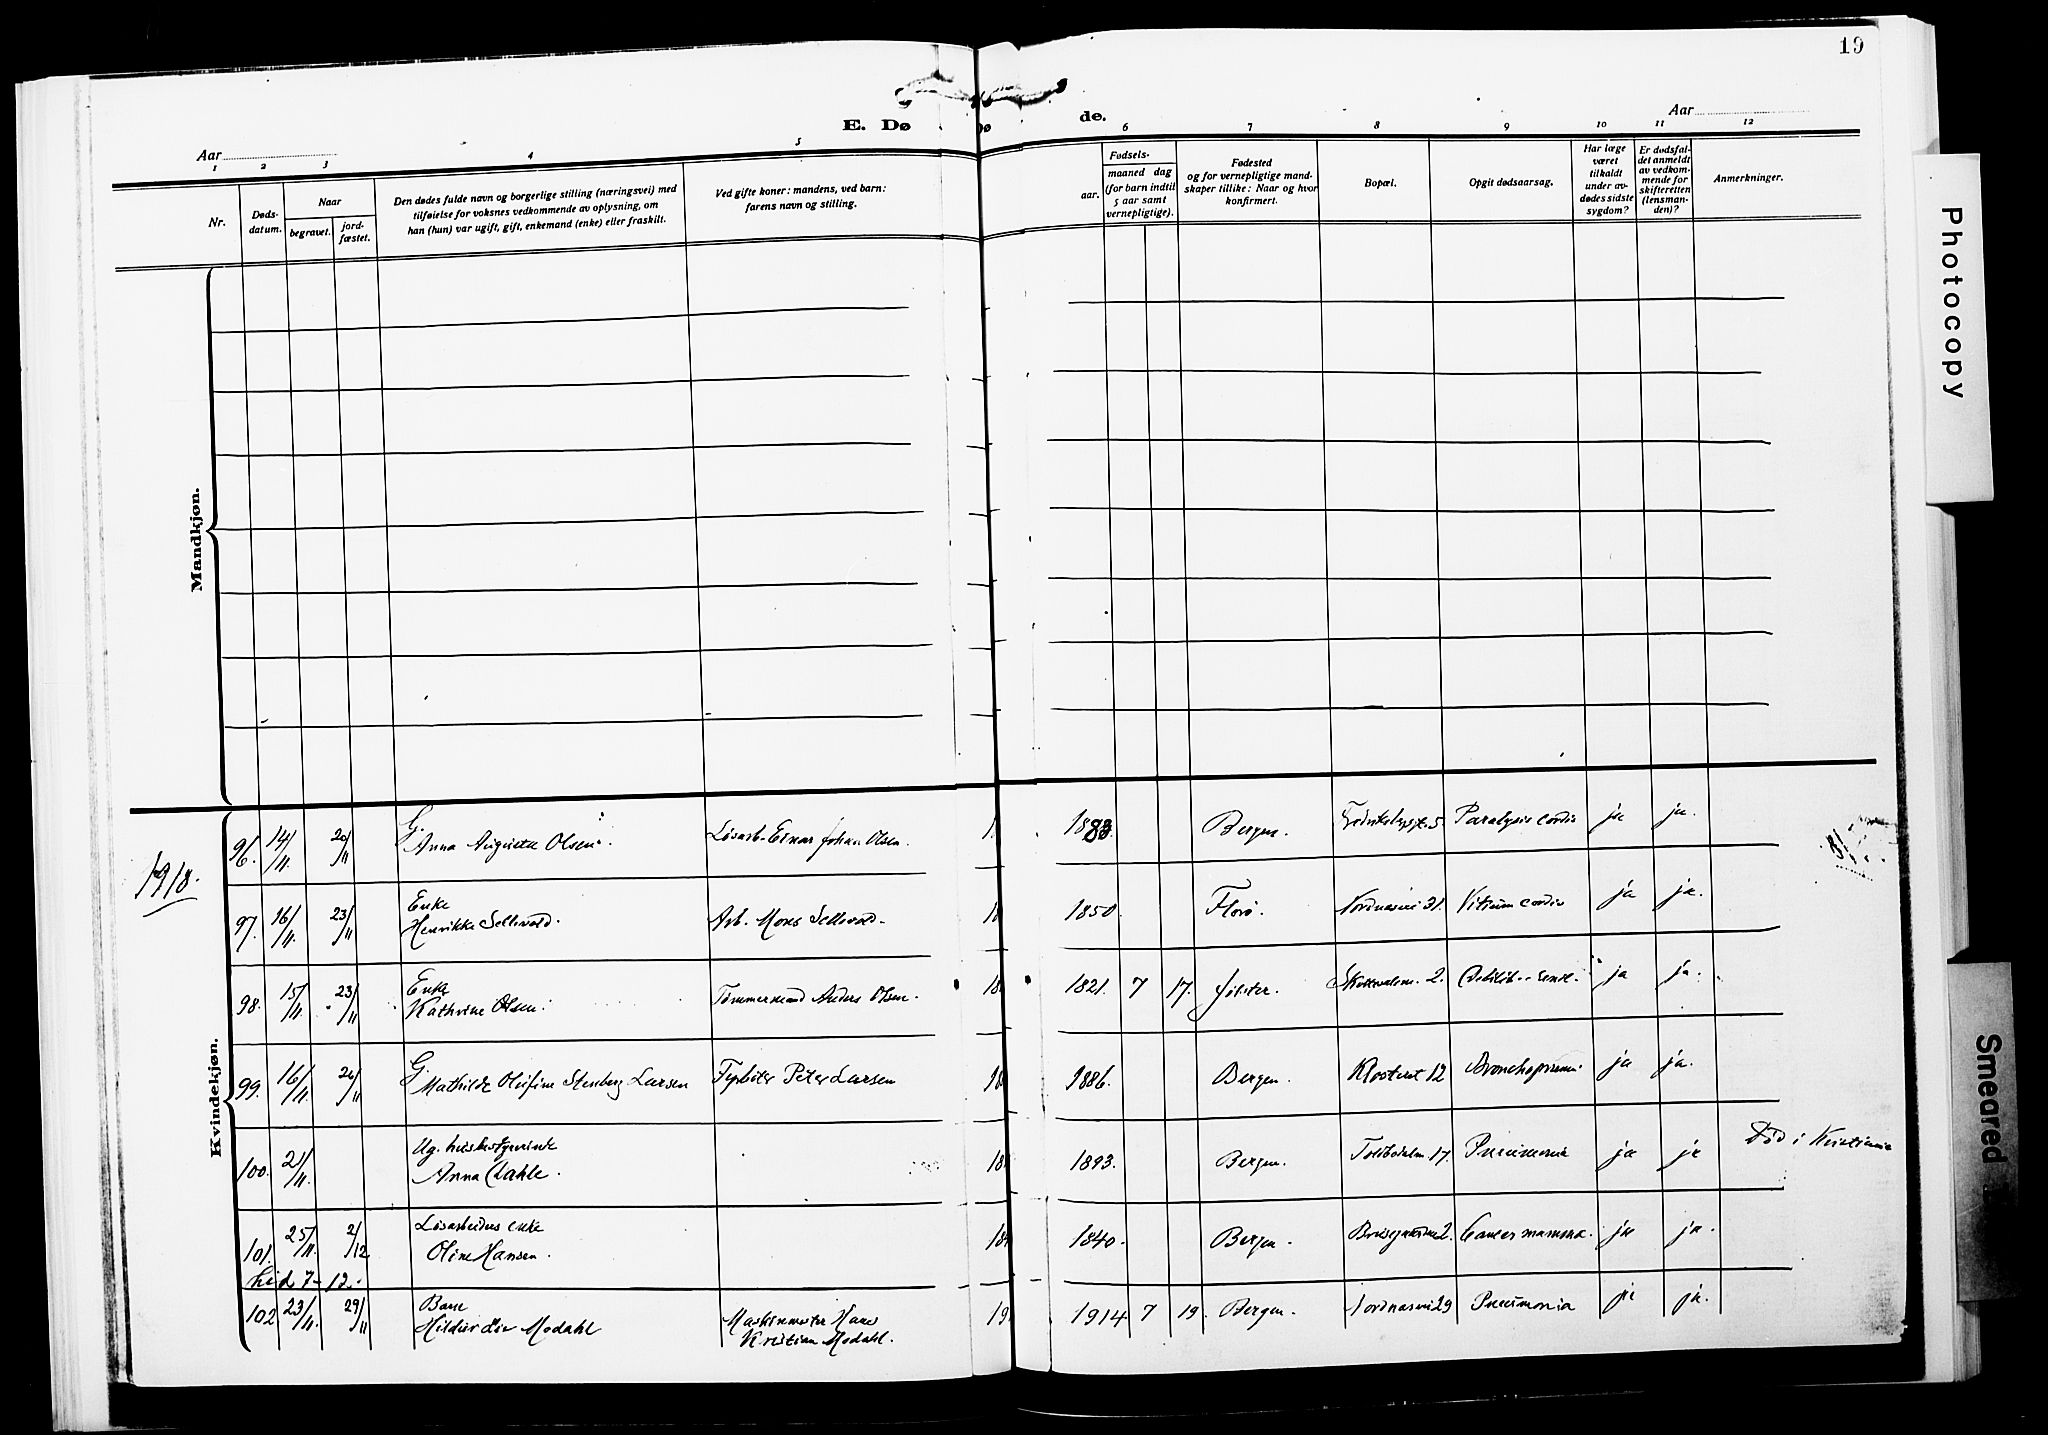 19
E. Dø de.
Aar Aar
1 2 3 4 5 6 7 8 9 10 11 12
Nr.
Døds-
datum.
Naar
begravet.
jord-
fæstet.
Den dødes fulde navn og borgerlige stilling (næringsvei) med
tilføielse for voksnes vedkommende av oplysning, om
han (hun) var ugift, gift, enkemand (enke) eller fraskilt.
Ved gifte koner: mandens, ved barn:
farens navn og stilling.
Fødsels-
aar.
maaned dag
(for barn indtil
5 aar samt
vernepligtige).
Fødested
og for vernepligtige mand-
skaper tillike: Naar og hvor
konfirmert.
Bopæl.
Opgit dødsaarsag.
Har læge
været
tilkaldt
under av-
dødes sidste
sygdom?
Er dødsfal-
det anmeldt
av vedkom-
mende for
skifteretten
(lensman-
den)?
Anmerkninger.
Mandkjøn.
Kvindekjøn.
1918.
96. 14/11. 20/11 G. Anna Augusta Olsen. Løsarb. Einar Johan Olsen. 1883. Bergen. Paralysis cordis ja ja.
97. 16/11. 23/11 Enke
Henrikke Sellevold. Arb. Mons Sellevold. 1850. Florø. Nordnesvei 31. Vitium cordis ja ja.
98. 15/11. 23/11 Enke
Kathrine Olsen. Tømmermand Anders Olsen. 1821. 7 17. Jølster. 2. ja ja.
99. 16/11. 26/11 G.
Mathilde Olufine Stenberg Larsen Fyrbøter Peter Larsen 1886. Bergen. Klosteret 12 Bronchopneumoni ja ja.
100. 21/11. Ug. husbestyrerinde
Anna Dahle. 1893. Bergen. Toldbodalm. 17. Pneumonia ja ja Død i Kristiania
101. 25/11. 2/12 Løsarbeiders enke
Oline Hansen. 1840. Bergen. 2. Cancer mamma. ja ja.
hid 7-12.
102 23/11. 29/11 Barn
Modahl Maskinmester Hans
Kristian Modahl. 1914 7 19. Bergen. Nordnesvei 29 Pneumonia ja ja.
Photocopy
Smeared